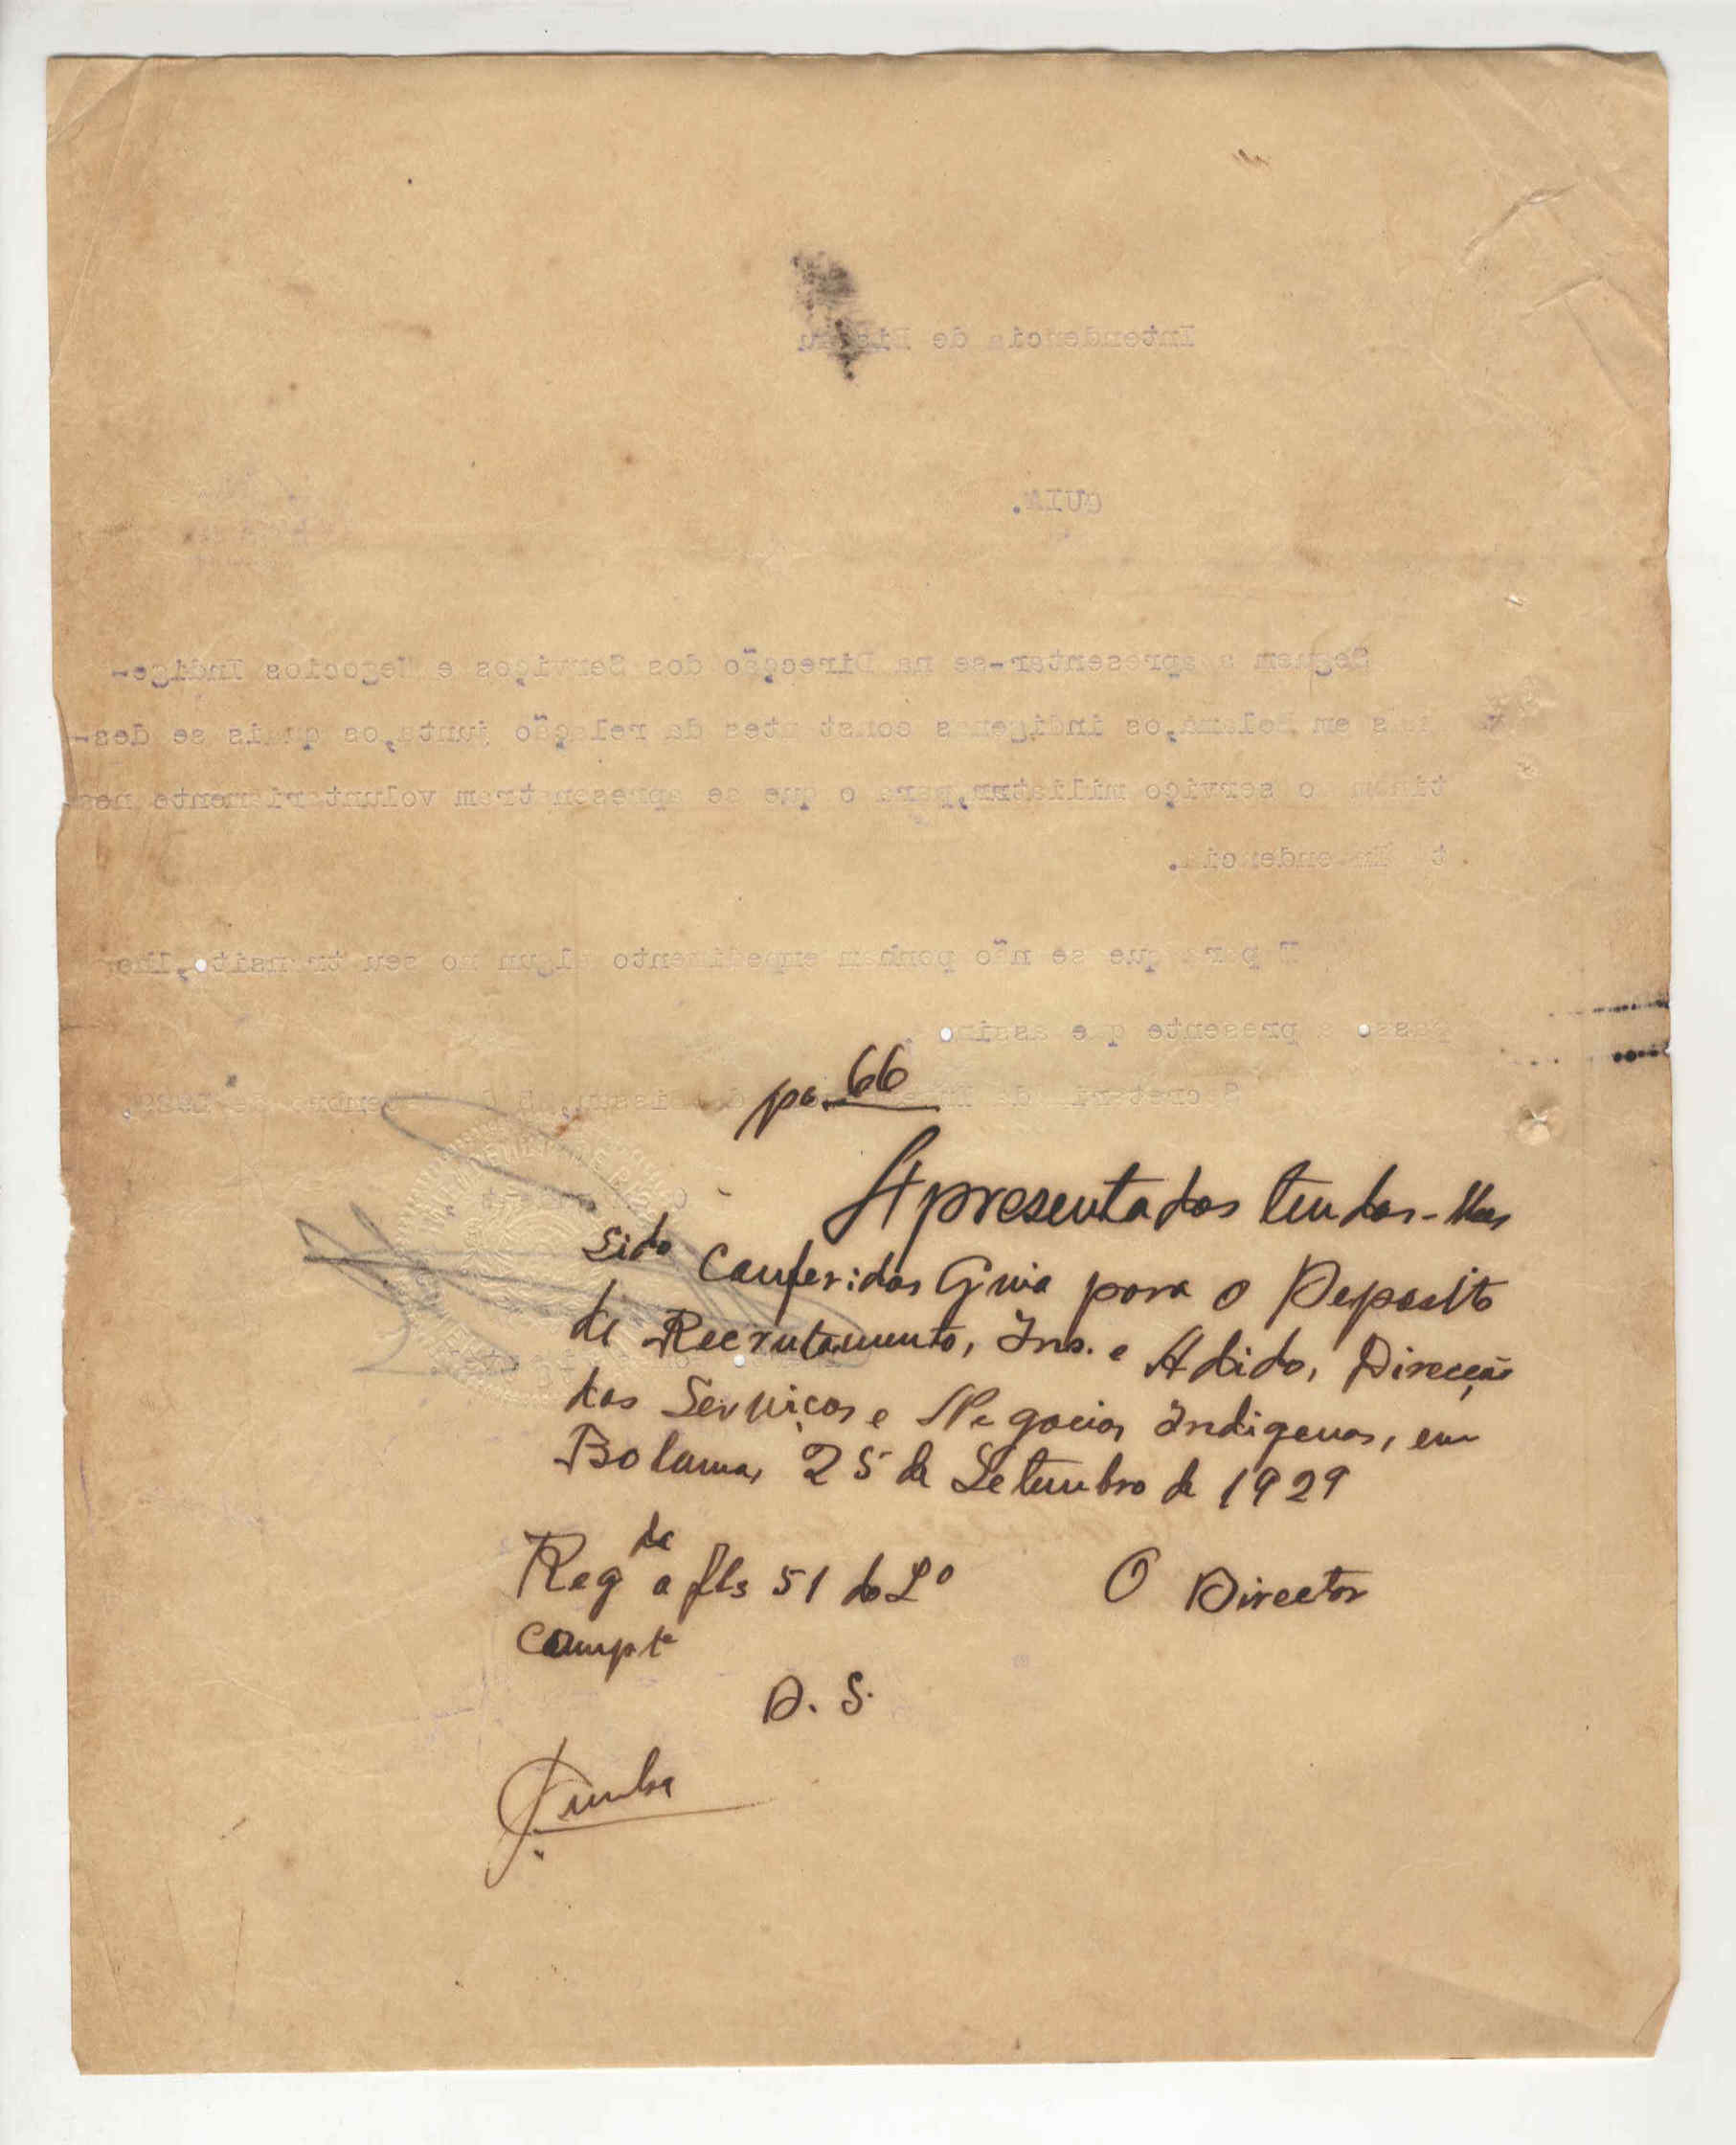 Intendencia de Bissau
GUIA.
Seguem a apresentar-se na Direcção dos Serviços e Negocios Indige-
em Bolama,os indigenas constantes da relação junta,os quais se des-
tinam ao serviço para o que se apresentram voluntariamente nes
ta Intendencia.
E para que se não ponham empedimento algum no seu transito,lhe
passo a presente que assino.
Secretaria da
pª 66
Apresentados tendos-lhes
sido Conferidos Guia para o Deposito
de Recrutamento, Ins. e Adido, Direcção
dos Serviços e Negocios Indigenas, em
Bolama, 25 de Setembro de 1929
Regda a fls 51 do Lº
O Director
Compte
D. S.